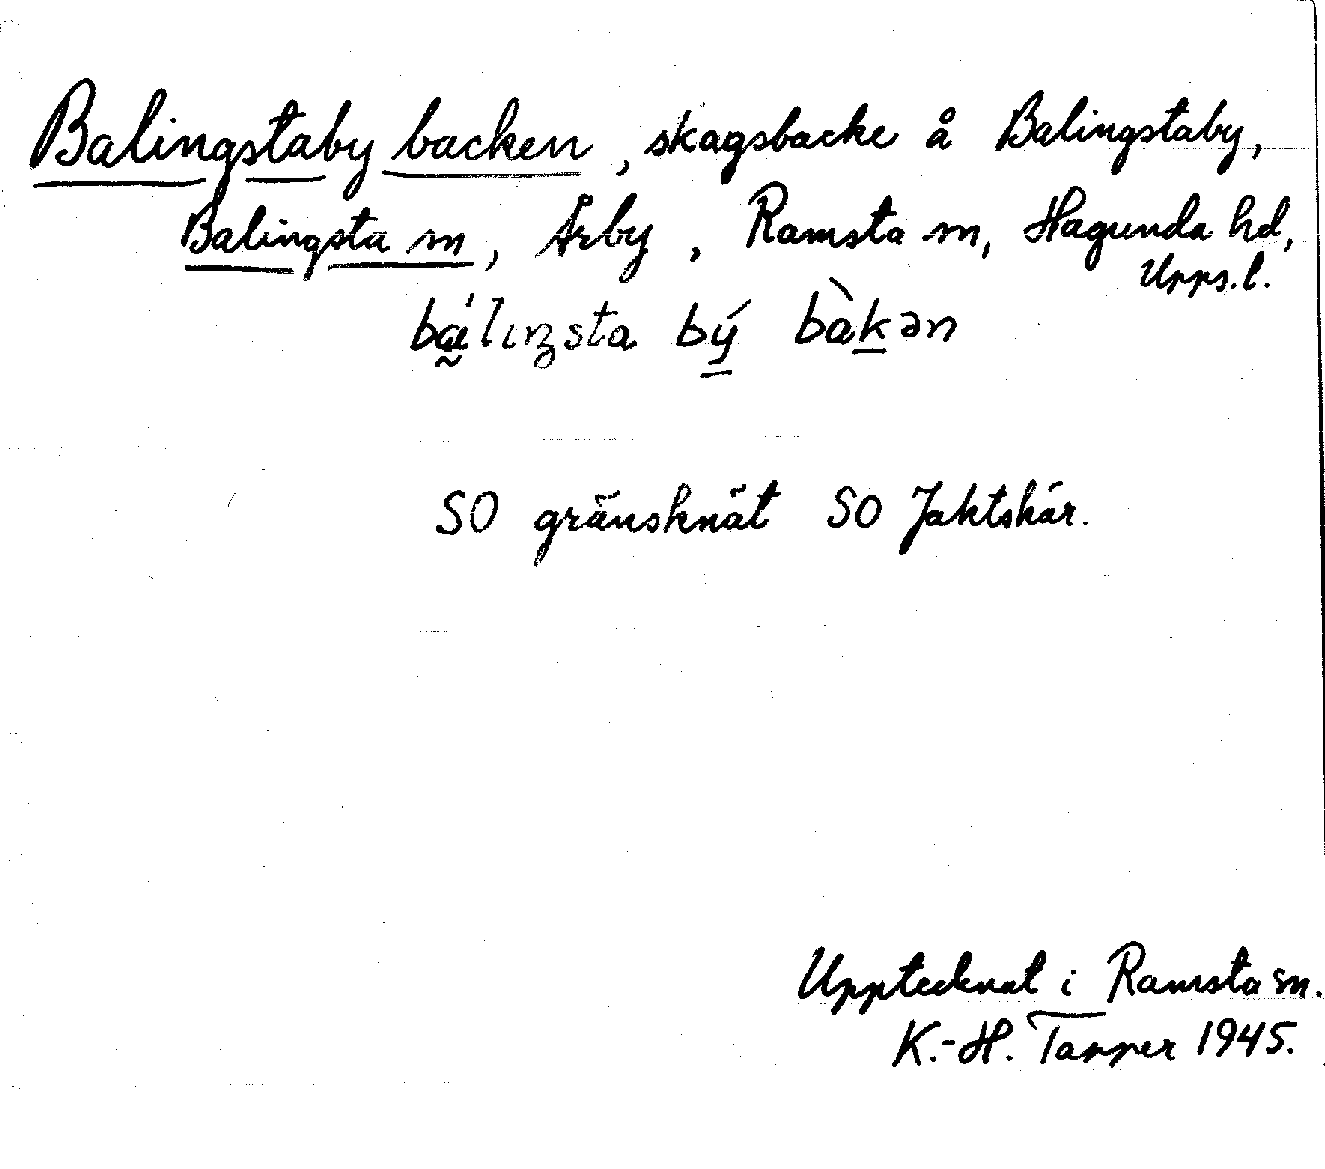 Balingstaby backen, skogsbacke å Balingstaby,
Balingsta sn, Årby, Ramsta sn, Hagunda hd,
Upps. l.
bálıŋsta bý bàkən
SO gränsknät SO Jaktskär.
Upptecknat i Ramsta sn.
K.-H. Tapper 1945.